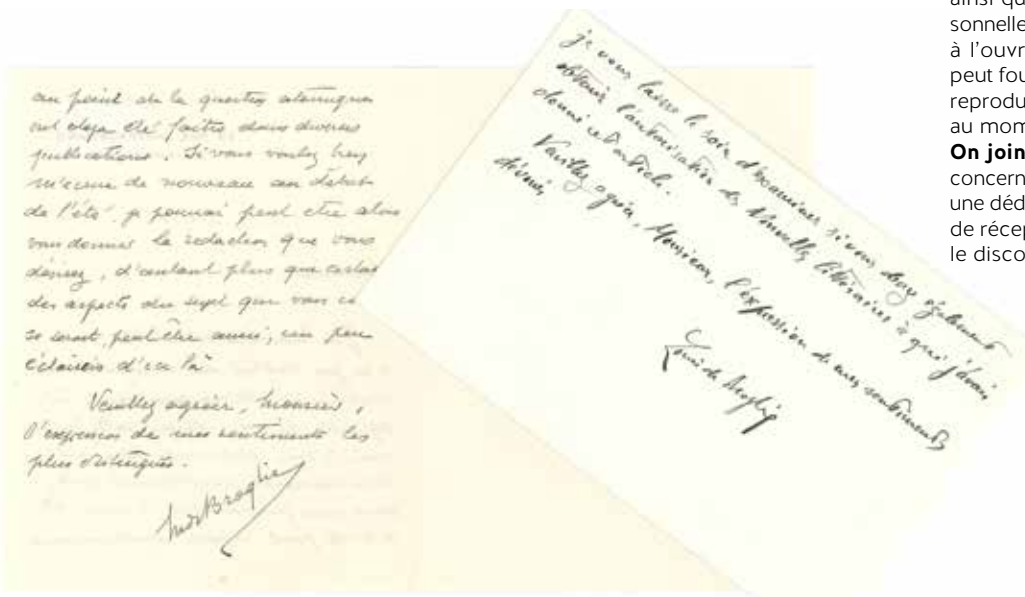 au point de la question atomique
ont déjà été faites dans diverses
publications. Si vous voulez bien
m'écrire de nouveau au début
de l'été je pourrai peut être alors
vous donner la rédaction que vous
désirez, d'autant plus que certains
des aspects du sujet que vous
se seront, peut être aussi, un peu
éclaircis d'ici là
Veuillez agréer, Monsieur,
l'expression de mes sentiments les
plus distingués.
M de Broglie
je vous laisse le soin d'examiner si vous devez également
obtenir l'autorisation des Nouvelles littéraires à qui j'avais
donné cet article.
Veuillez agréer, Monsieur, l'expression de mes sentiments
dévoués
Louis de Broglie
ainsi qu
sonnelle
à l'ouvr
peut fou
reprodu
au mom
On join
concern
une déd
de récep
le disco